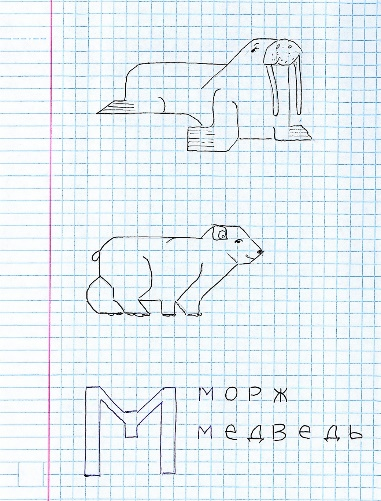 М
морж
медведь